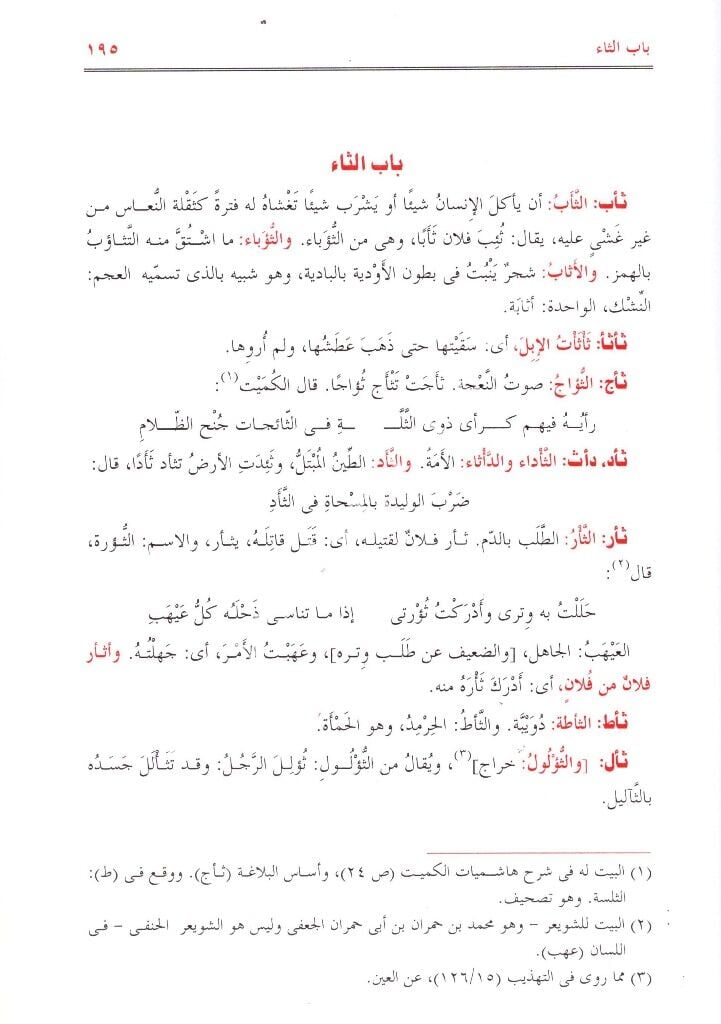 باب الثاء
١٩٥
باب الثاء
ثأب: الثَّأَبُ: أن يأكلَ الإنسانُ شيئًا أو يَشْرَب شيئًا تَغْشاهُ له فترةً كثَقْلة النُّعاس من
غير غَشْىٍ عليه، يقال: ثُئِبَ فلان ثَأَبًا، وهى من الثُّؤَباء. والثُّؤَباء: ما اشْتُقَّ منه التَّثاؤبُ
بالهمز. والأَثابُ: شجرٌ يَنْبُتُ فى بطون الأَوْدية بالبادية، وهو شبيه بالذى تسمّيه العجم:
النِّشْك، الواحدة: أثابَة.
ثأثأ: ثَأْثَأْتُ الإبِلَ، أى: سَقَيْتها حتى ذَهَبَ عَطَشُها، ولم أُروِها.
ثأج: الثُّؤاجُ: صوتُ النَّعْجة. ثأجَتْ تَثْأَج ثُؤاجًا. قال الكُمَيْت(١):
رأيُهُ فيهم كرأى ذوى الثَّلَّـ ـةِ فى الثّائجات جُنْح الظَّلامِ
ثأد، دأث: الثَّأْداء والدَّأْثاء: الأمَةُ. والثَّأَد: الطِّينُ المُبْتَلُّ، وثَئِدَتِ الأرضُ تثأد ثَأَدًا، قال:
ضَرْبَ الوليدة بالمِسْحاةِ فى الثَّأَدِ
ثأر: الثَّأْرُ: الطَّلَب بالدّم. ثأر فلانٌ لقتيله، أى: قَتَل قاتِلَهُ، يثأر، والاسم: الثُّؤرة،
قال(٢):
حَلَلْتُ به وِترى وأَدْرَكْتُ ثُؤْرتى إذا ما تناسى ذَحْلَه كُلُّ عَيْهَبِ
العَيْهَبُ: الجاهل، [والضعيف عن طَلَب وِتره]، وعَهَبْتُ الأَمْرَ، أى: جَهلْتُهُ. وأثأر
فلانٌ من فُلانٍ، أى: أَدْرَكَ ثَأْرَهُ منه.
ثأط: الثأطة: دُوَيْبَّة. والثَّأطُ: الحِرْمِدُ، وهو الحَمْأَة.
ثأل: [والثُّؤْلُولُ: خراج](٣)، ويُقالُ من الثُّؤْلُول: ثُؤلِلَ الرَّجُلُ: وقد تَثَأْلَلَ جَسَدُه
بالثَّآليل.
(١) البيت له فى شرح هاشميات الكميت (ص ٢٤)، وأساس البلاغة (ثأج). ووقع فى (ط):
الثلسة. وهو تصحيف.
(٢) البيت للشويعر - وهو محمد بن حمران بن أبى حمران الجعفى وليس هو الشويعر الحنفى - فى
اللسان (عهب).
(٣) مما روى فى التهذيب (١٢٦/١٥)، عن العين.